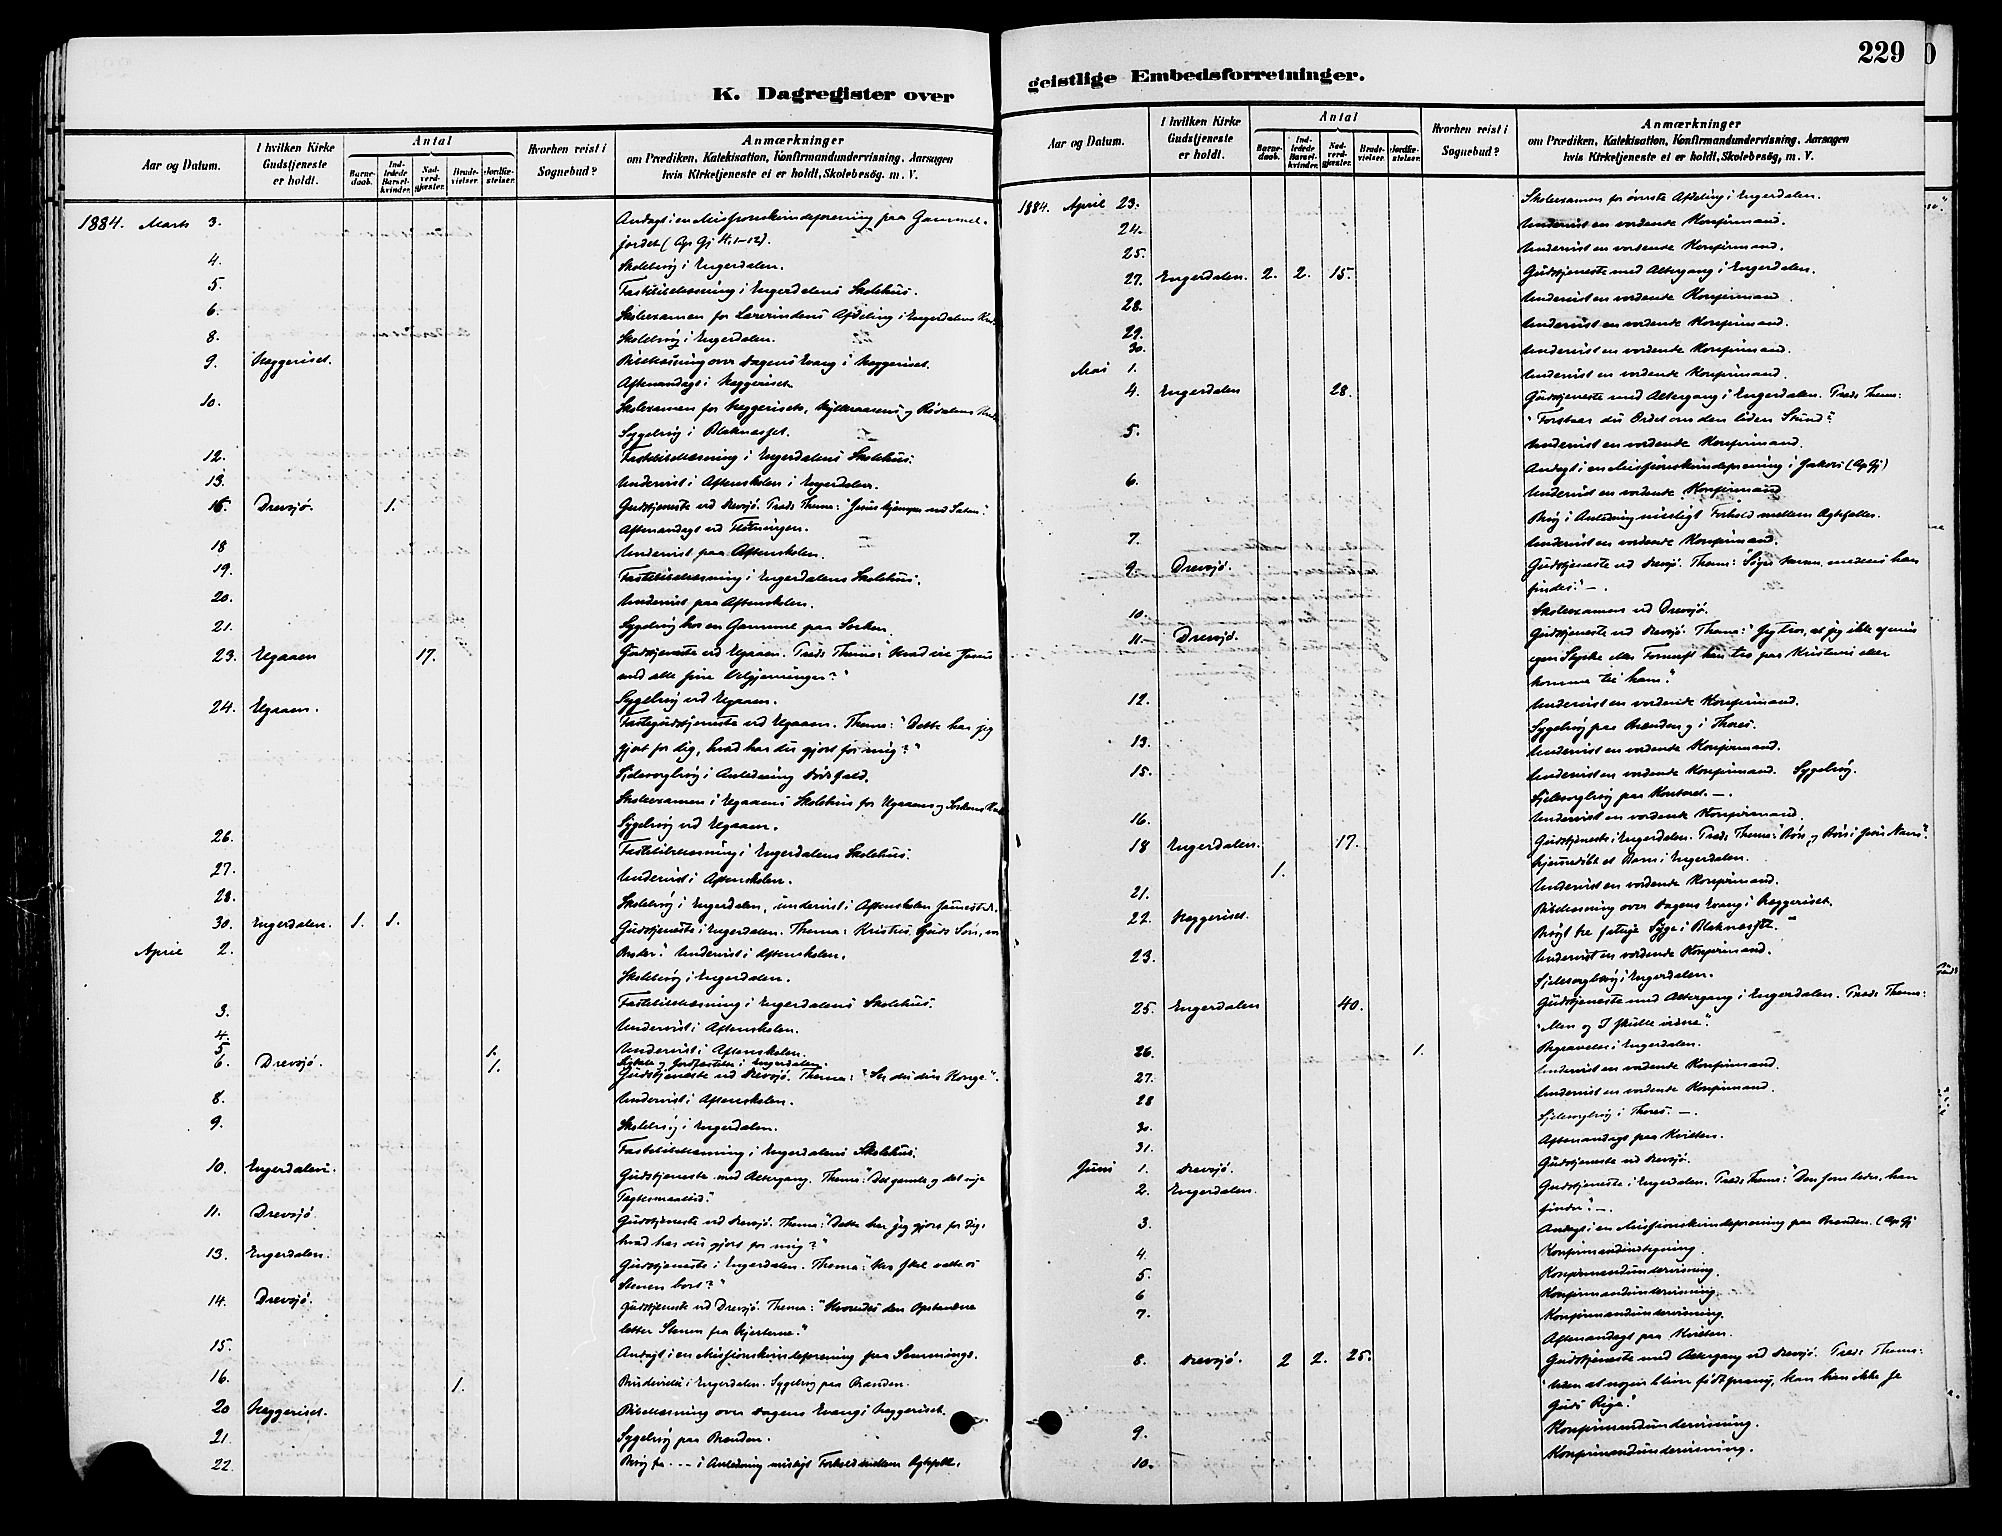 229
K. Dagregister over
geistlige Embedsforretninger.
Aar og Datum.
I hvilken Kirke Gudstjeneste er holdt.
Antal
Barnedaab.
Indledede Barselkvinder.
Nadverdgjester.
Brudevielser.
Jordfæstelser.
Hvorhen reist i Sognebud?
Anmærkninger
om Prædiken, Katekisation, Konfirmandundervisning, Aarsagen
hvis Kirketjeneste ei er holdt, Skolebesøg. m. V.
1884. Marts 3. Andagt i en Missionskvindeforening paa Gammel-
jordet (Ap Gj 1-12).
4. Skolebesøg i Engerdalen.
5. Fastebibellæsning i Engerdalens Skolehus.
6. Skoleexamen for Lærerindens Afdeling i Engerdalens
8. Skolebesøg i Engerdalen.
9. Heggeriset. Bibellæsning over Dagens Evang i Heggeriset.
Aftenandagt i Heggeriset.
10. Skolexamen for Heggerisets, Hylleraasens og
Sygebesøg i Blaknæsset.
12. Fastebibellæsning i Engerdalens Skolehus.
13. Undervist i Aftenskolen i Engerdalen.
16. Drevsjø. 1. Gudstjeneste ved Drevsjø. Præd. Thema: "Jesus kjæmper med Satan."
Aftenandagt ved Fløtningen.
18 Undervist paa Aftenskolen.
19. Fastebibellæsning i Engerdalens Skolehus.
20. Undervist paa Aftenskolen.
21. Sygebesøg hos en Gammel paa Sorken.
23. Elgaaen 17. Gudstjeneste ved Elgaaen. Præd. Thema: "Hvad ere Jesus
med alle sine Velgjerninger?"
24. Elgaaen. Sygebesøg ved Elgaaen.
Fastegudstjeneste ved Elgaaen. Thema: "Dette har jeg
gjort for dig, hvad har du gjort for mig?"
Sjelesorgbesøg i Anledning Dødsfald.
Skoleexamen i Elgaaens Skolehus for Elgaaens og Sorkens
Sygebesøg ved Elgaaen.
26. Fastebibellæsning i Engerdalens Skolehus.
27. Undervist i Aftenskolen.
28. Skolebesøg i Engerdalen, undervist i Aftenskolen sammesteds.
30. Engerdalen. 1. 1. Gudstjeneste i Engerdalen. Thema: Kristus, Guds Søn, vor
April 2. Broder." Undervist i Aftenskolen.
Skolebesøg i Engerdalen.
Fastebibellæsning i Engerdalens Skolehus.
3. Undervist i Aftenskolen.
4.
5 1. Undervist i Aftenskolen.
og Jordfæstelse i Engerdalen.
6. Drevsjø. 1. Gudstjeneste ved Drevsjø. Thema: "Se du din Konge".
8. Undervist i Aftenskolen.
9. Skolebesøg i Engerdalen.
Fastebibellæsning i Engerdalens Skolehus.
10. Engerdalen. Gudstjeneste med Altergang. Thema: "Det gamle og det nye
Pagtesmaaltid."
11. Drevsjø. Gudstjeneste ved Drevsjø. Thema: "Dette har jeg gjort for dig,
hvad har du gjort for mig?"
13. Engerdalen. Gudstjeneste i Engerdalen. Thema: "Hvo skal vælte os
Stenen bort?"
14. Drevsjø. Gudstjeneste ved Drevsjø. Thema: "Hvorledes den Opstandne
letter Stenen fra Hjerterne."
15. Andagt i en Missionskvindeforening paa Sømmings.
16. 1. Brudevielse i Engerdalen. Sygebesøg paa Brænden.
20 Heggeriset. Bibellæsning over Dagens Evang i Heggeriset.
21. Sygebesøg paa Brænden.
22. Besøg i Anledning misligt Forhold mellem Egtefolk.
Aar og Datum.
I hvilken Kirke Gudstjeneste er holdt.
Antal
Barnedaab.
Indledede Barselkvinder.
Nadverdgjester.
Brudevielser.
Jordfæstelser.
Hvorhen reist i Sognebud?
Anmærkninger
om Prædiken, Katekisation, Konfirmandundervisning, Aarsagen
hvis Kirketjeneste ei er holdt, Skolebesøg, m. V.
1884. April 23. Skolexamen for øverste Afdeling i Engerdalen.
24. Undervist en vordende Konfirmand.
25. Undervist en vordende Konfirmand.
27. Engerdalen. 2. 2. 15. Gudstjeneste med Altergang i Engerdalen.
28. Undervist en vordende Konfirmand.
29. Undervist en vordende Konfirmand.
30. Undervist en vordende Konfirmand.
Mai 1. Undervist en vordende Konfirmand.
4. Engerdalen 28. Gudstjeneste med Altergang i Engerdalen. Præd. Thema:
"Forstaar du Ordet om den liden Stund?"
5. Undervist en vordende Konfirmand.
Andagt i en Missionskvindeforening i (Ap Gj)
6. Undervist en vordende Konfirmand
Besøg i Anledning misligt Forhold mellem Egtefæller.
7. Undervist en vordende Konfirmand.
9. Drevsjø. Gudstjeneste ved Drevsjø. Thema: "Søger Herren, medens han
findes." —.
10. Skolexamen ved Drevsjø.
11.— Drevsjø. Gudstjeneste ved Drevsjø. Thema: "Jeg tror, at jeg ikke af min
egen Styrke eller Fornuft kan tro paa Kristum eller
komme til ham."
12. Undervist en vordende Konfirmand.
Sygebesøg paa Brænden og i Thores.
13. Undervist en vordende Konfirmand.
15. Undervist en vordende Konfirmand. Sygebesøg.
Sjelesorgbesøg paa Kontoret. —.
16. Undervist en vordende Konfirmand.
18 Engerdalen. 17. Gudstjeneste i Engerdalen. Præd. Thema: "Bøn og Bøn i Jesu Navn".
1. Hjemmedøbt et Barn i Engerdalen.
21. Undervist en vordende Konfirmand.
22. Heggeriset. Bibellæsning over Dagens Evang i Heggeriset.
Besøgt tre fattige Syge i Blaknæsset.
23. Undervist en vordende Konfirmand.
Sjelesorgbesøg i Engerdalen.
25. Engerdalen 40. Gudstjeneste med Altergang i Engerdalen. Præd. Thema:
"Men og I skulle vidne".
26. 1. Begravelse i Engerdalen.
27. Undervist en vordende Konfirmand.
28 Undervist en vordende Konfirmand.
30. Sjelesorgbesøg i Thores. —.
31. Aftenandagt paa Kvilten.
Juni 1. Drevsjø. Gudstjeneste ved Drevsjø.
2. Engerdalen. Gudstjeneste i Engerdalen. Præd. Thema: "Den som leder, han
finder." —.
3. Andagt i en Missionskvindeforening paa Brænden. (Ap Gj
4. Konfirmandindtegning.
5. Konfirmandundervisning.
6 Konfirmandundervisning.
7. Konfirmandundervisning.
Aftenandagt paa Kvilten.
8. Drevsjø. 2 2. 25. Gudstjeneste med Altergang ved Drevsjø. Præd. Thema:
"Uden at nogen bliver født paany, kan han ikke se
Guds Rige".
9. Konfirmandundervisning.
10. Konfirmandundervisning.